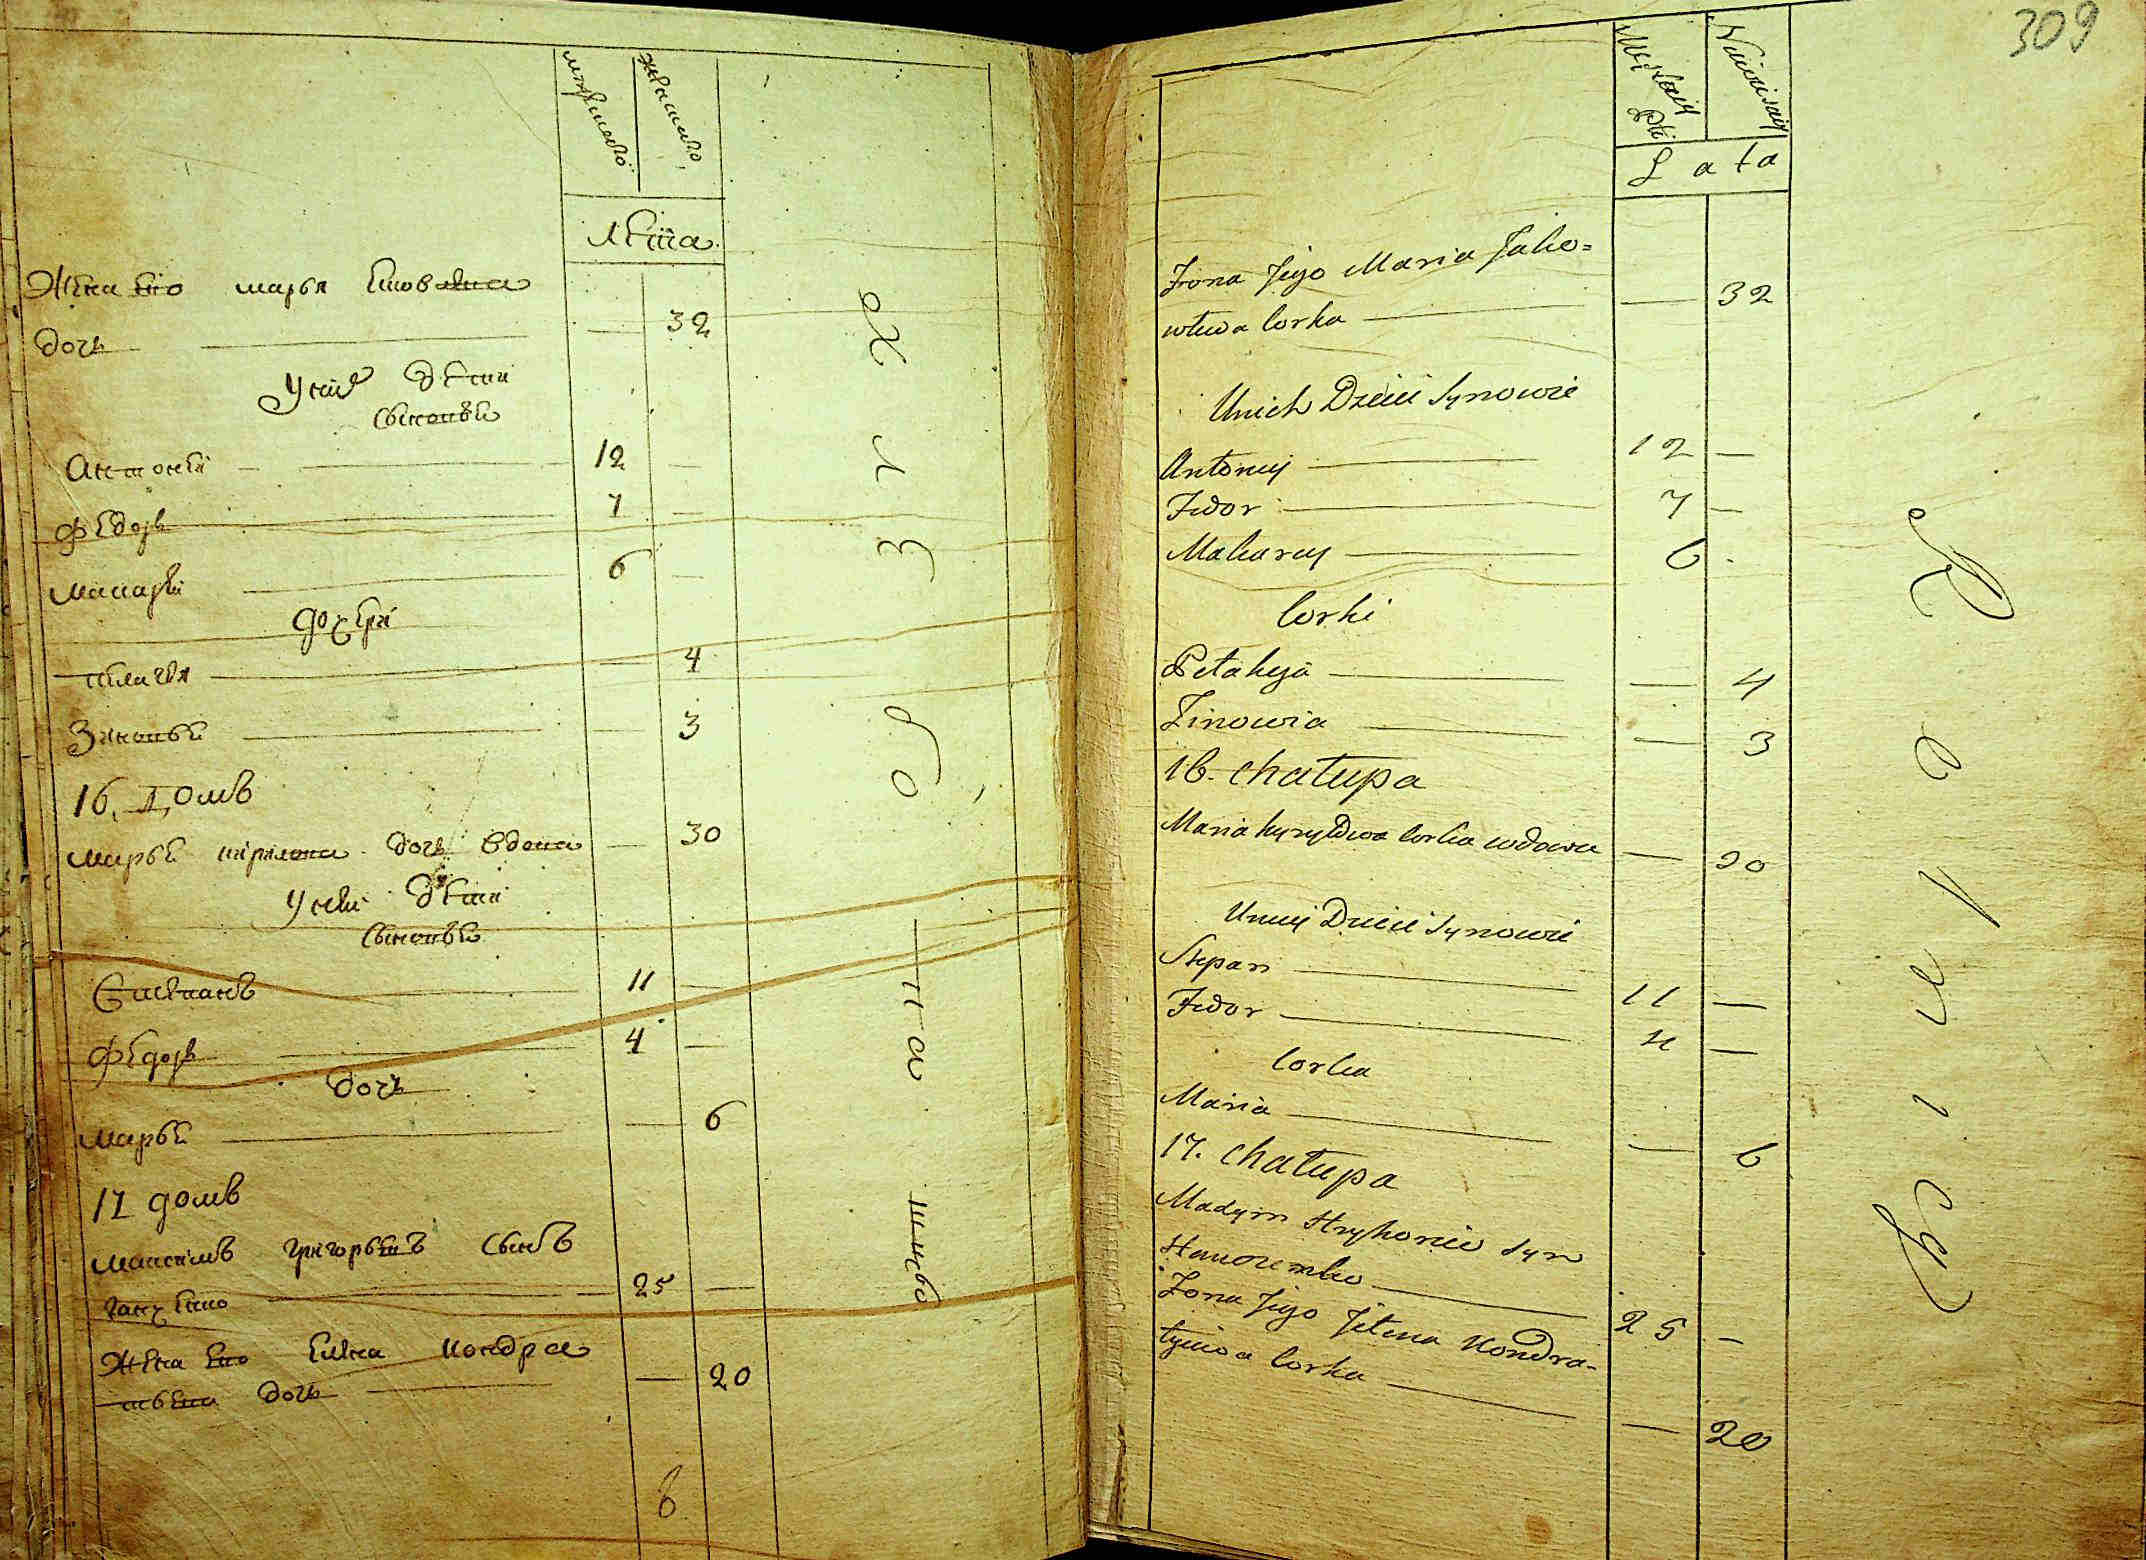 мужеска
женска
лета
Жена его марья яковлева
дочь 32
У них дети
сыновья
Антоней 12
Федоръ 7
Макарей 6
дочери
пелагея 4
Зиновья 3
16. Домъ
Марья кирилова дочь вдова 30
У неи дети
сыновья
Степанъ 11
Федоръ 4
дочь
Марья 6
17 домъ
Максимъ григорьевъ сынъ
ганченко 25
Жена его елена кондра
тьева дочь 20
309
Męskiey
Płci
Niewieściey
Lata
Żona Jego Maria Jako=
wlewa Corka 32
Unich Dzieci Synowie
Antoniy 12
Fedor 7
Makarey 6
Corki
Pelaheja 4
Zinowia 3
16. Chałupa
Maria kyryłowa Corka wdowa 30
Uniey Dzieci Synowie
Stepan 11
Fedor 4
Corka
Maria 6
17. Chałupa
Hryhoriew Syn
25
Żona Jego Jełena Kondra-
tyewa Corka 20